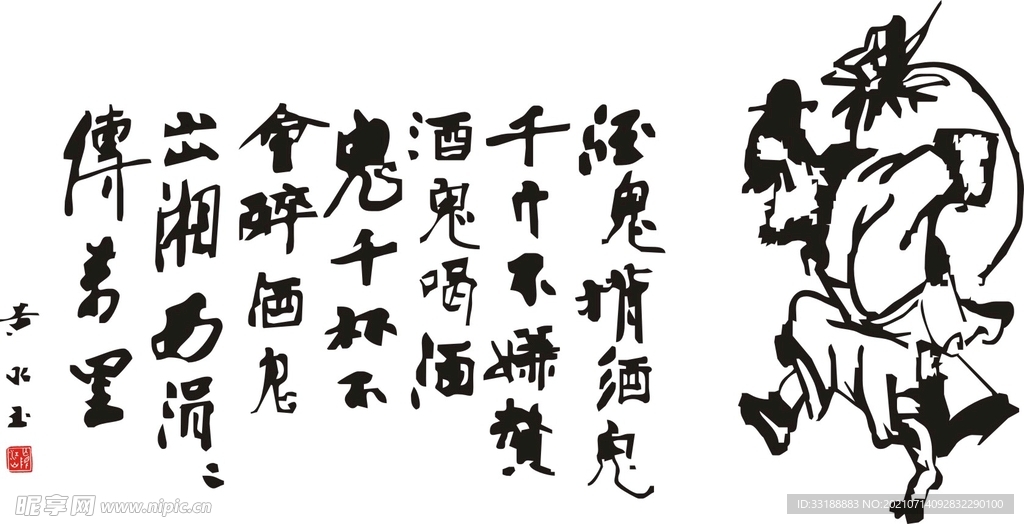 酒鬼揹酒鬼
千斤不嫌贅
酒鬼喝酒
鬼千杯不
會醉酒鬼
出湘西涓々
傳萬里
黄永玉
昵享网 www.nipic.cn
ID:33188883 NO:20210714092832290100